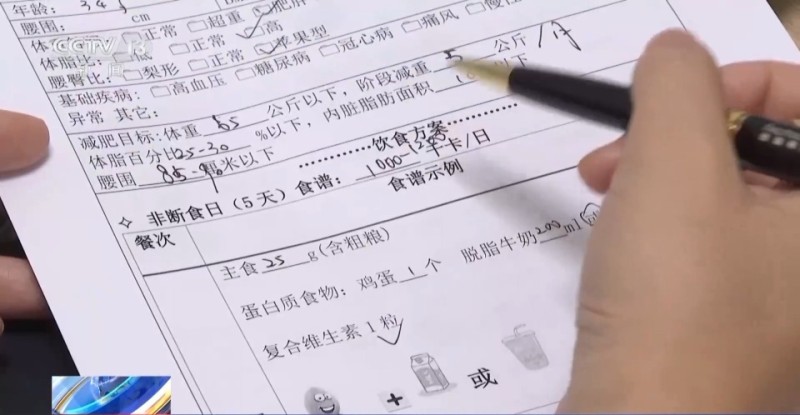 年龄：34岁
腰围： cm
体 □正常 □超重 ☑肥胖
体脂比：□低 □正常 ☑高
腰臀比：□梨形 □正常 ☑苹果型
基础疾病：□高血压 □糖尿病 □冠心病 □痛风 □慢性
异常 其它：
减肥目标：体重 65 公斤以下，阶段减重 5 公斤/月
体脂百分比25-30 %以下，内脏脂肪面积 以下
腰围 85-90 米以下
饮食方案
非断食日（5天）食谱：1000-1200千卡/日
食谱示例
餐次
主食 25 g(含粗粮)
蛋白质食物：鸡蛋 1 个 脱脂牛奶 200 ml
复合维生素1粒
+ 或
CCTV 13